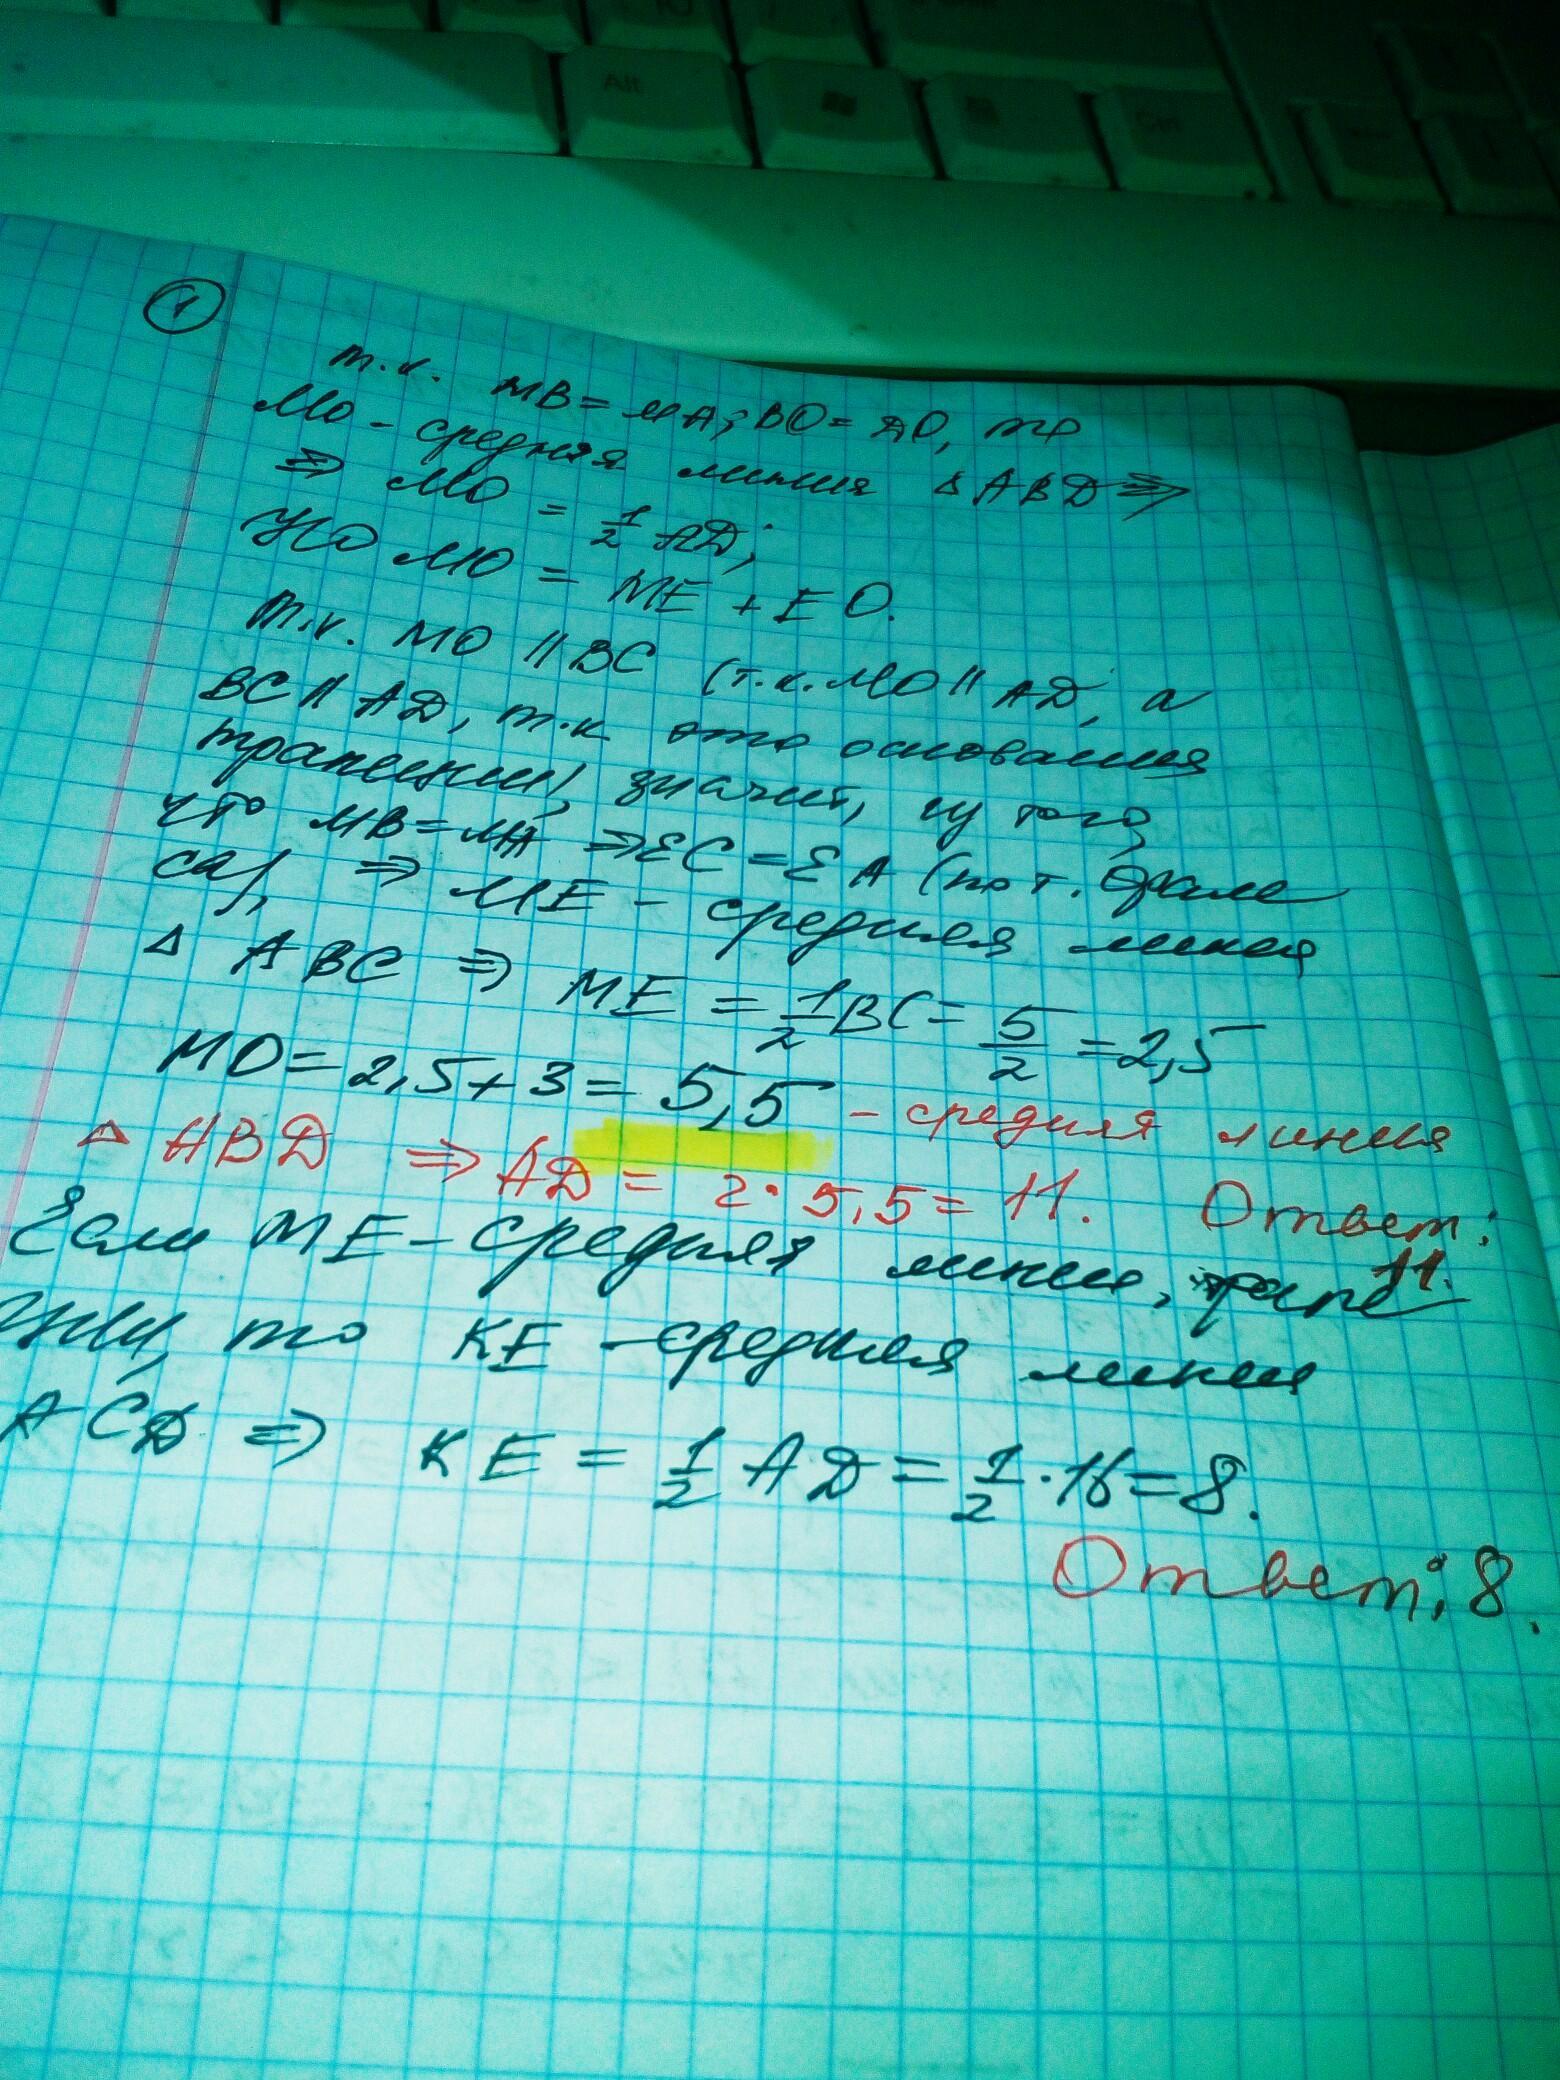 Alt
Ctrl
1
т.к. MB = MA; BO = DO, то
MO - средняя линия ∆ ABD ⇒
⇒ MO = 1/2 AD;
Но MO = ME + EO.
т.к. MO || BC (т.к. MO || AD, а
BC || AD, т.к это основания
трапеции), значит, из того,
что MB = MA ⇒ EC = EA (по т. Фале
са), ⇒ ME - средняя линия
∆ ABC ⇒ ME = 1/2 BC = 5/2 = 2,5
MO = 2,5 + 3 = 5,5 - средняя линия
∆ ABD ⇒ AD = 2 · 5,5 = 11. Ответ:
11.
Если ME - средняя линия, трапе
ции, то KE - средняя линия
ACD ⇒ KE = 1/2 AD = 1/2 · 16 = 8.
Ответ: 8.